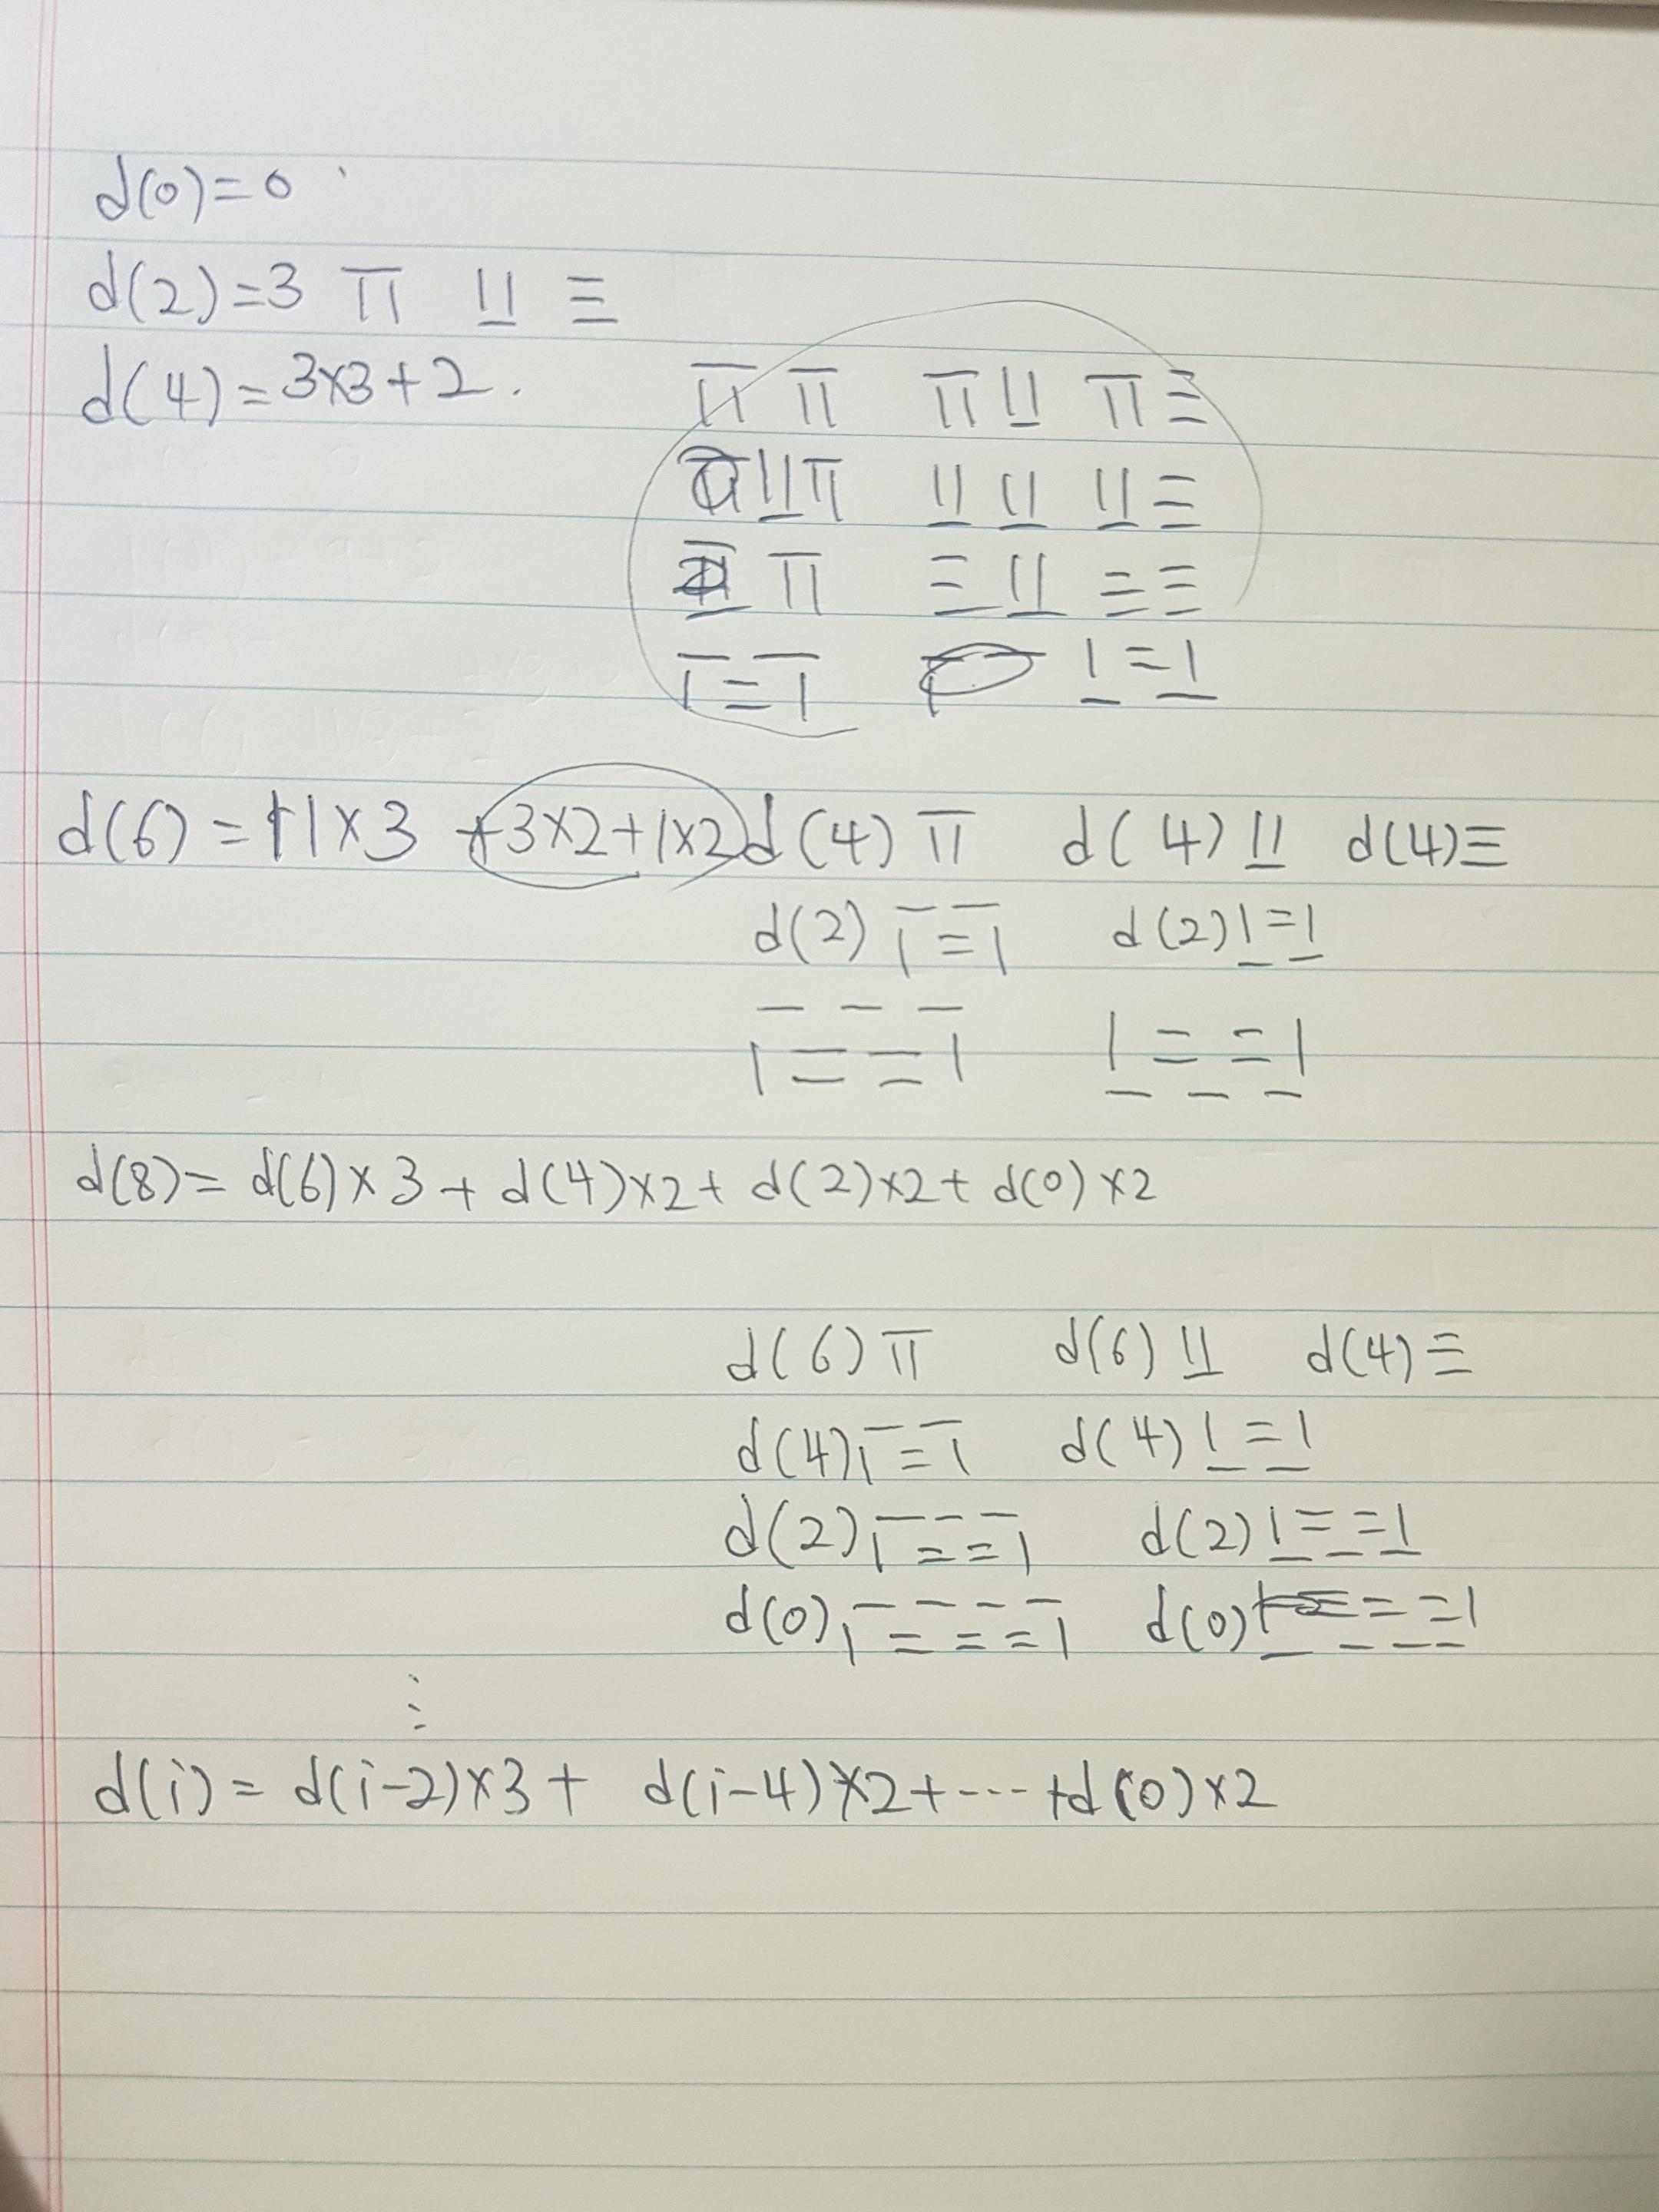 d(0)=0
d(2)=3
d(4)=3x3+2.
d(6)=11x3+3x2+1x2 d(4) d(4) d(4)
d(2) d(2)
d(8)=d(6)x3+d(4)x2+d(2)x2+d(0)x2
d(6) d(6) d(4)
d(4) d(4)
d(2) d(2)
d(0) d(0)
d(i)=d(i-2)x3+ d(i-4)x2+---+d(0)x2